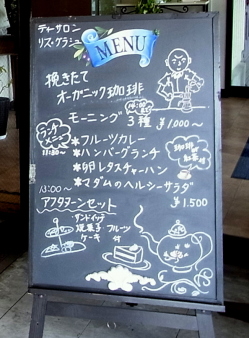 ティーサロン
リス・グラシュ
MENU
挽きたて
オーガニック珈琲
モーニング 3種 ¥1,000～
ランチ
メニュー
11:30～
*フルーツカレー
*ハンバーグランチ
*卵レタスチャーハン
*マダムのヘルシーサラダ
珈琲
紅茶付
13:00～
¥1.500
アフタヌーンセット
サンドイッチ
焼菓子 フルーツ
ケーキ 付